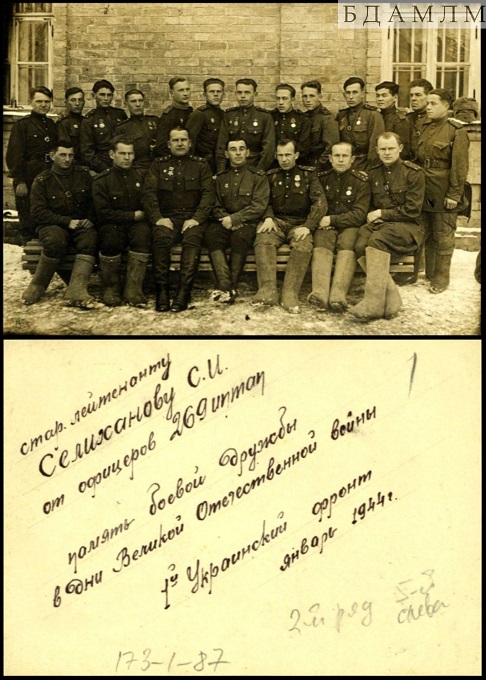 БДАМЛМ
1
стар. лейтенанту
Селиханову С.И.
от офицеров 269 иптап
память боевой дружбы
в дни Великой Отечественной войны
1й Украинский фронт
январь 1944г.
2й ряд 5-й
слева
173-1-87